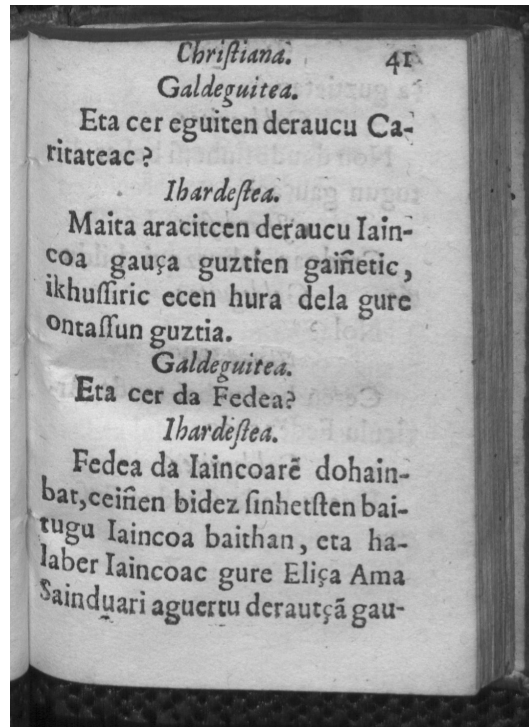 Chriſtiana. 41
Galdeguitea.
Eta cer eguiten deraucu Ca-
ritateac ?
Ihardeſtea.
Maita aracitcen deraucu Iain-
coa gauça guztien gaiñetic,
ikhuſſiric ecen hura dela gure
ontaſſun guztia.
Galdeguitea.
Eta cer da Fedea?
Ihardeſtea.
Fedea da Iaincoarẽ dohain-
bat, ceiñen bidez ſinhetſten bai-
tugu Iaincoa baithan, eta ha-
laber Iaincoac gure Eliça Ama
Sainduari aguertu derautçã gau-